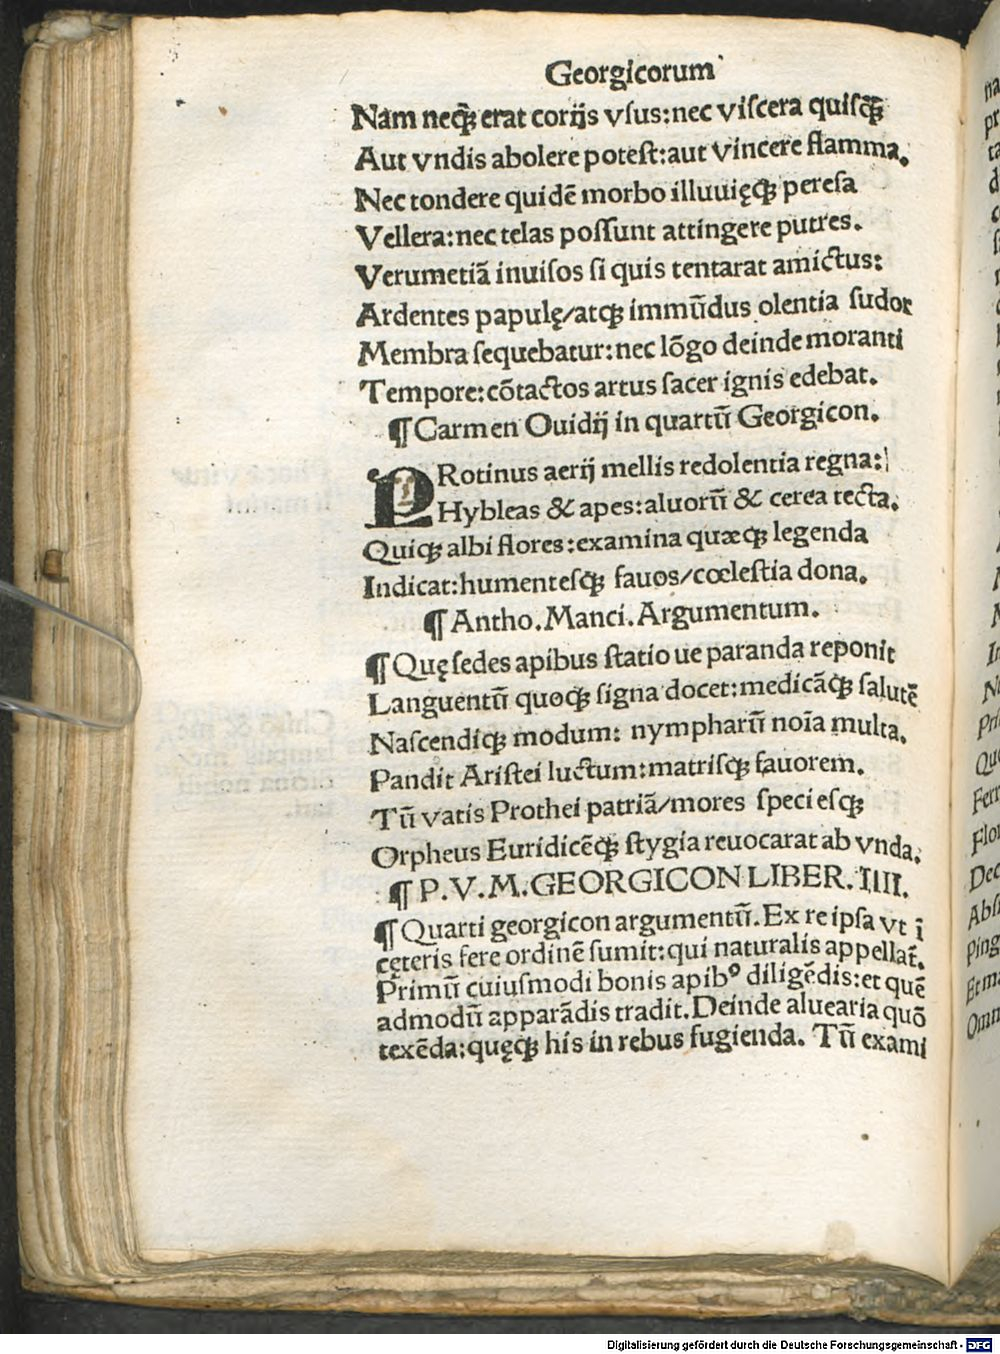 Georgicorum
Nam neqꝫ erat corijs vſus:nec viſcera quiſqꝫ̃
Aut vndis abolere poteſt:aut vincere flamma.
Nec tondere quidẽ morbo illuuięqꝫ pereſa
Vellera:nec telas poſſunt attingere putres.
Verumetiã inuiſos ſi quis tentarat amictus:
Ardentes papulę/atqꝫ immũdus olentia ſudor
Membra ſequebatur:nec lõgo deinde moranti
Tempore:cõtactos artus ſacer ignis edebat.
¶Carmen Ouidij in quartũ Georgicon.
PRotinus aerij mellis redolentia regna:
Hybleas & apes:aluorũ & cerea tecta.
Quiqꝫ albi flores:examina quæqꝫ legenda
Indicat:humenteſqꝫ fauos/cœleſtia dona.
¶Antho.Manci.Argumentum.
¶Quę ſedes apibus ſtatio ue paranda reponit
Languentũ quoqꝫ ſigna docet:medicãqꝫ ſalutẽ
Naſcendiqꝫ modum: nympharũ noĩa multa.
Pandit Ariſtei luctum:matriſqꝫ fauorem.
Tũ vatis Prothei patriã/mores ſpecieſqꝫ
Orpheus Euridicẽqꝫ ſtygia reuocarat ab vnda.
¶P.V.M.GEORGICON LIBER.IIII.
¶Quarti georgicon argumentũ.Ex re ipſa vt ĩ
cęteris fere ordinẽ ſumit:qui naturalis appellat̃.
Primũ cuiuſmodi bonis apibꝰ diligẽdis:et quẽ
admodũ apparãdis tradit.Deinde aluearia quõ
texẽda:quęqꝫ his in rebus fugienda. Tũ exami
Digitalisierung gefördert durch die Deutsche Forschungsgemeinschaft - DFG